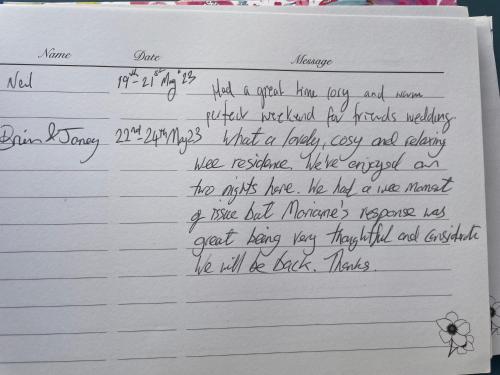 Name Date Message
Neil 19th - 21st May '23 Had a great time cosy and warm
perfect weekend for friends wedding.
Brian & Janey 22nd - 24th May 23 What a lovely, cosy and relaxing
wee residence. We've enjoyed our
two nights here. We had a wee moment
of issue but Morianne's response was
great being very thoughtful and considerate
We will be back. Thanks.